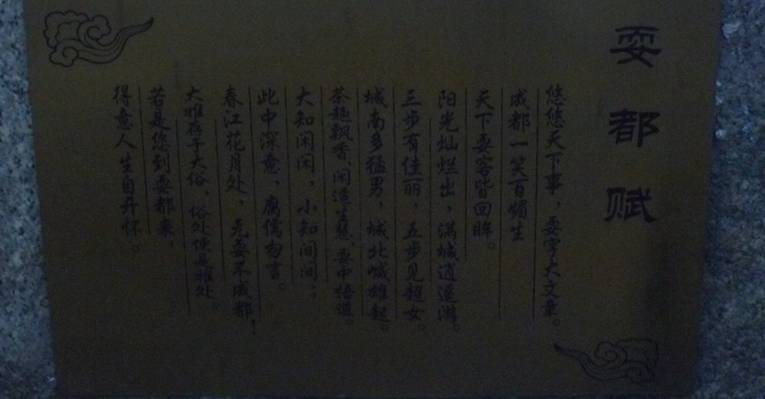 耍都赋
悠悠天下事，耍字大文章。
成都一笑百媚生
天下耍客皆回眸。
阳光灿烂出，满城逍遥游。
三步有佳丽，五步见超女。
城南多猛男，城北喊雄起。
茶趣飘香，闲适生慧，耍中悟道。
大知闲闲，小知间间；
此中深意，腐儒勿言。
春江花月处，无耍不成都！
大雅存乎大俗，俗处便是雅处。
若是您到耍都来，
得意人生自开怀。